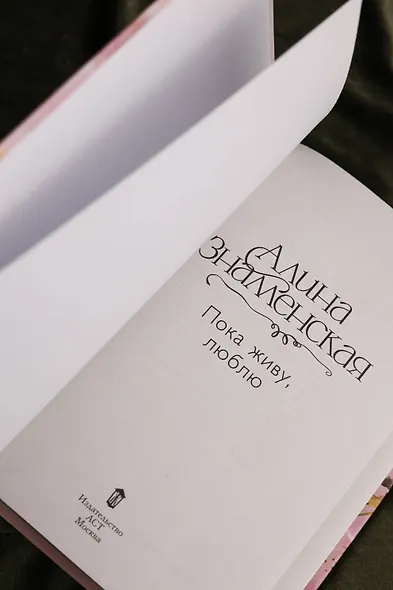 Алина
Знаменская
Пока живу,
люблю
Издательство
АСТ
Москва